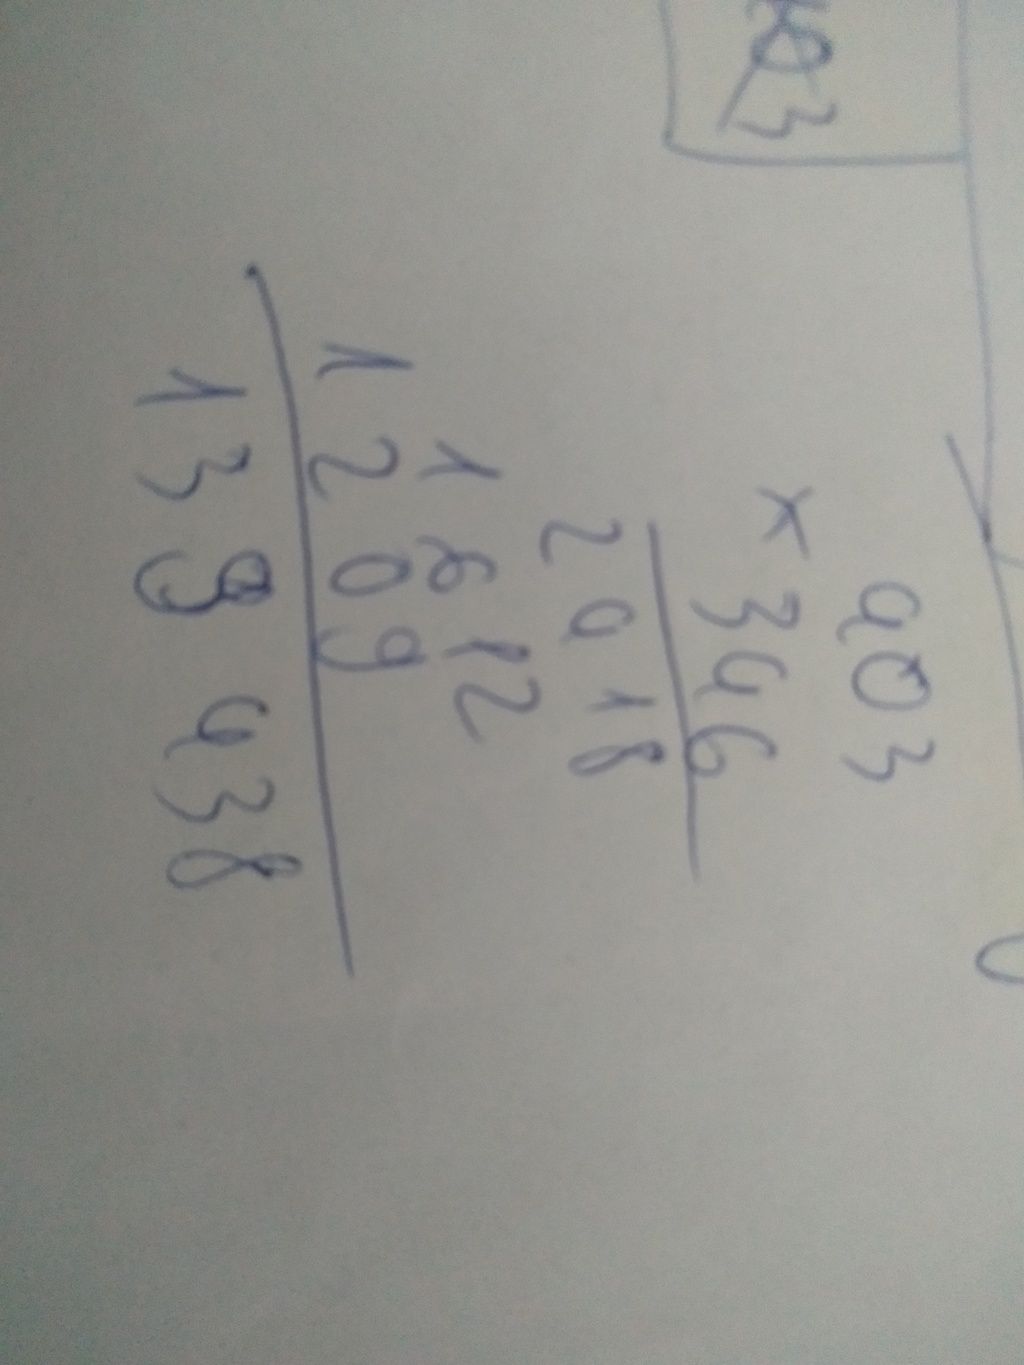 403
× 346
2418
1612
1209
139438